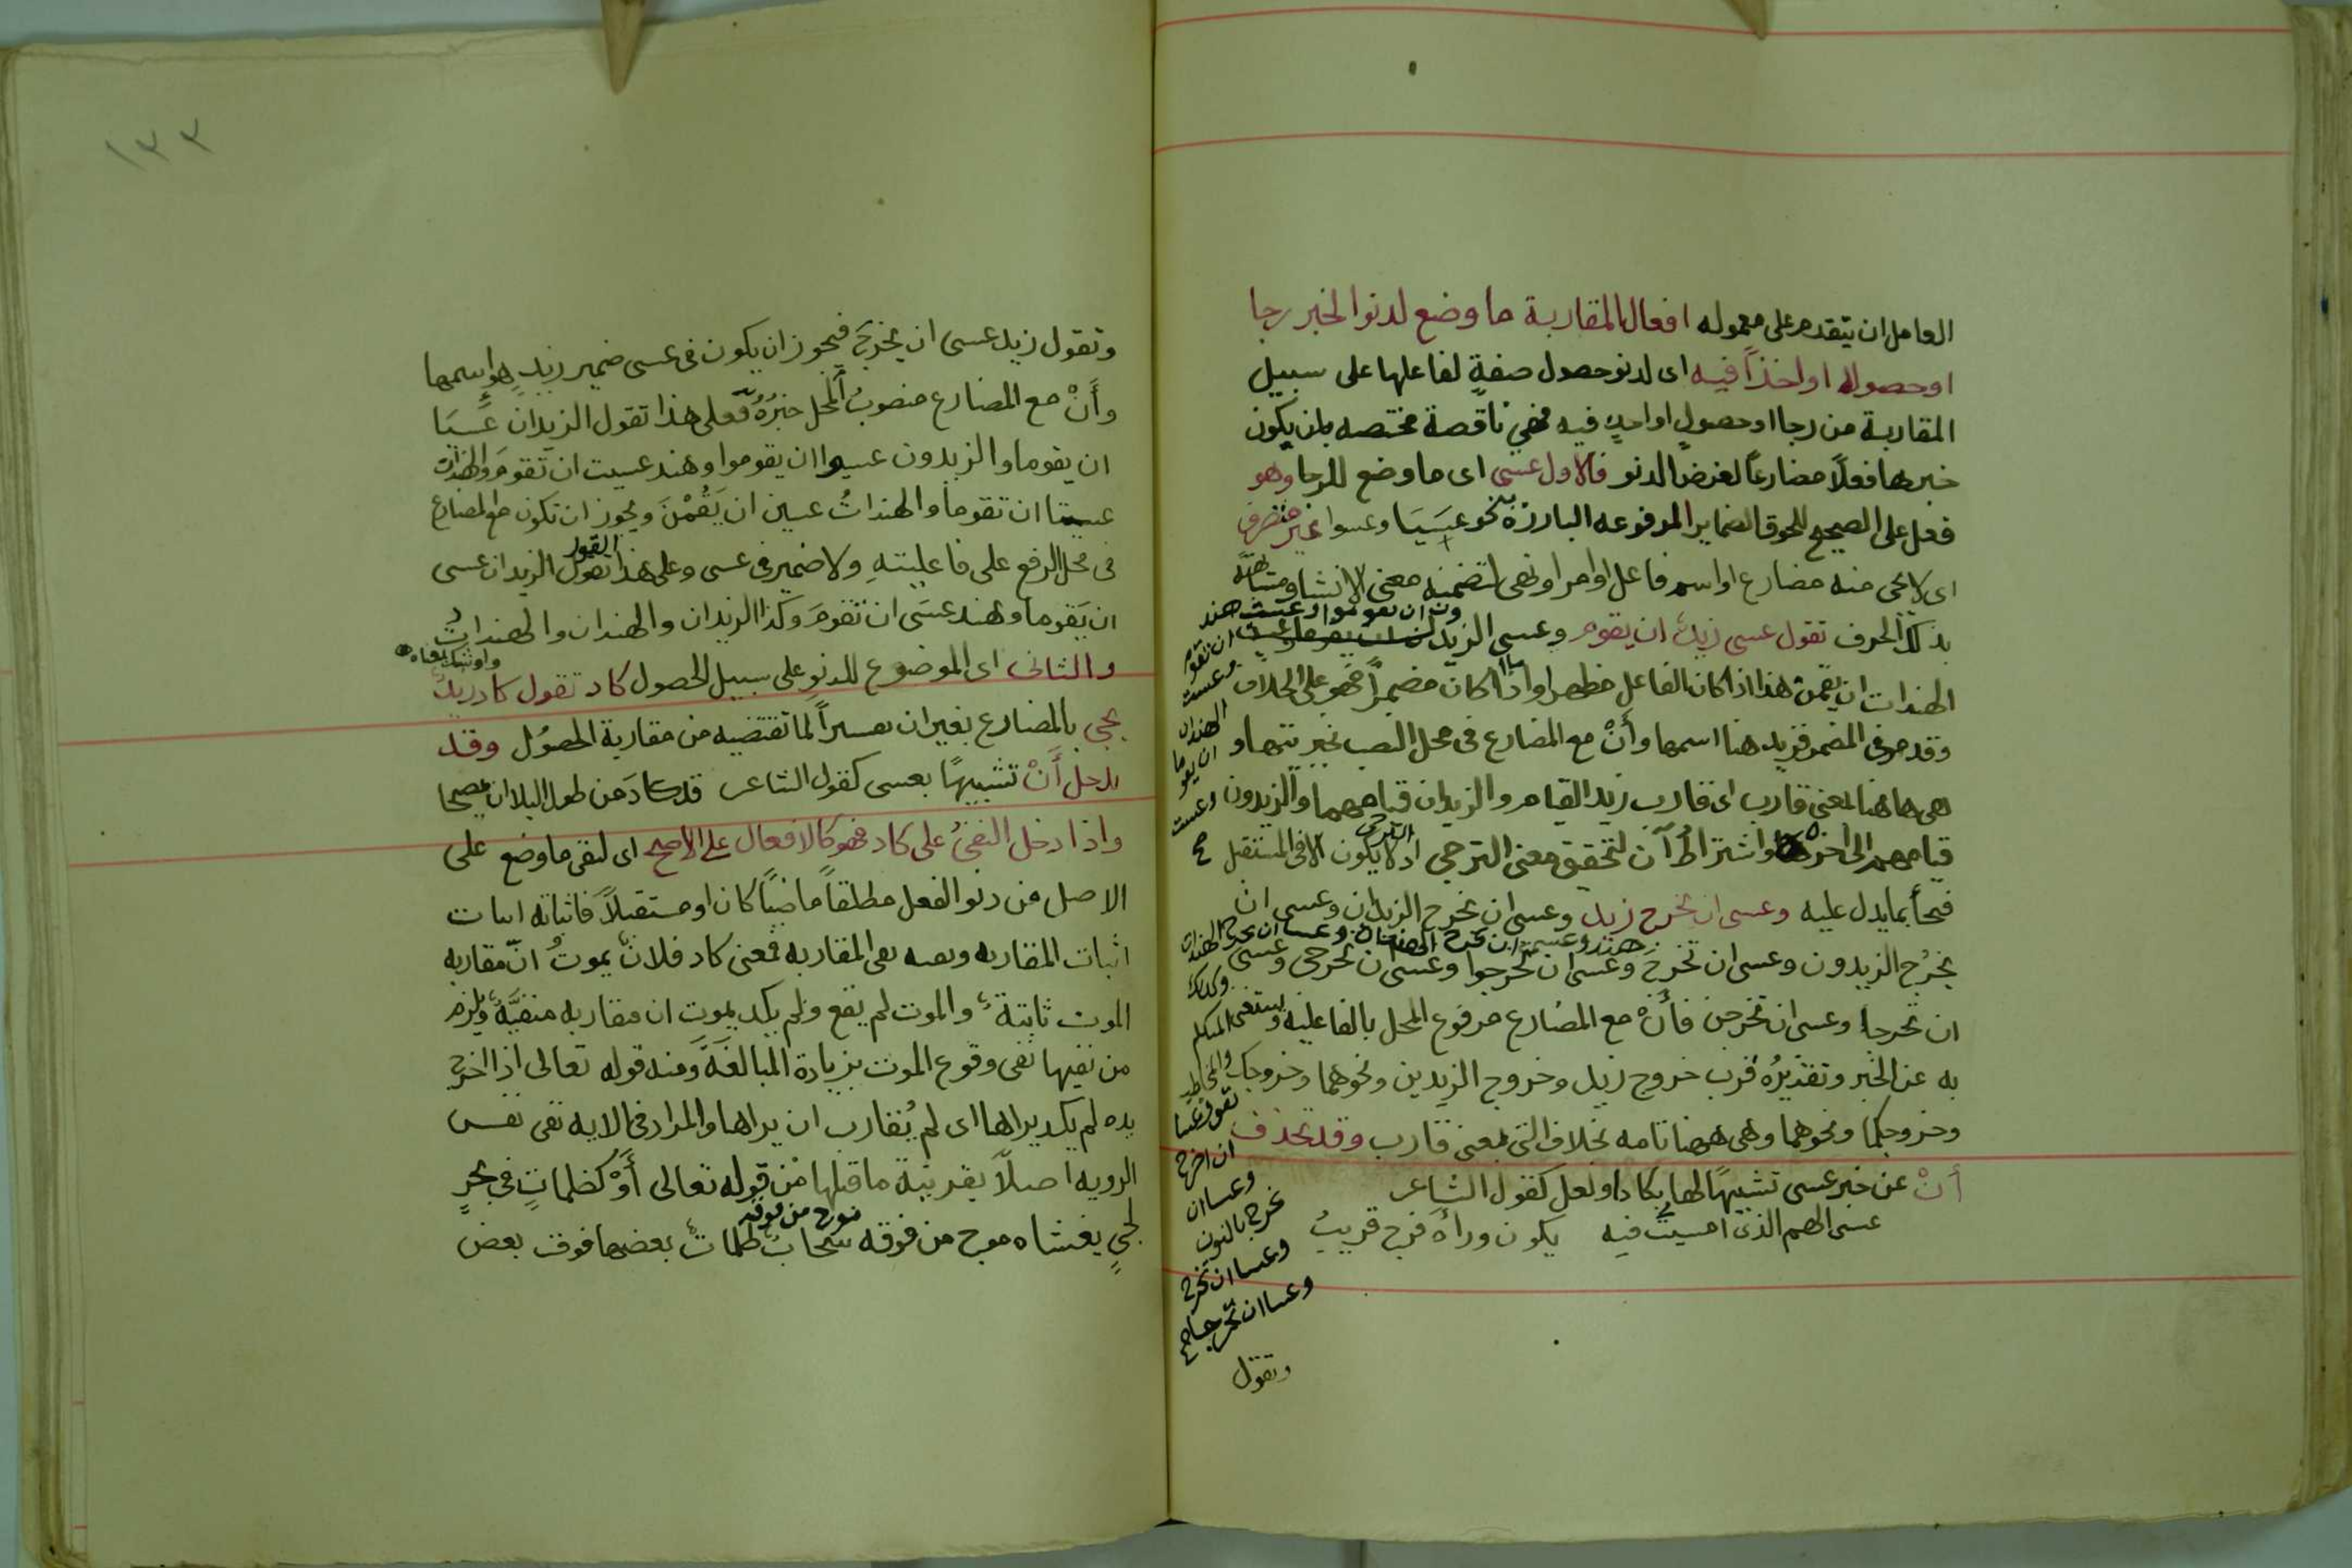 العامل ان يتقدم على معموله افعال المقاربة ما وضع لدنو الخبر رجا
او حصوله او اخذاً فيه اى لدنو حصول صفةٍ لفاعلها على سبيل
المقاربة من رجا او حصولٍ او اخذٍ فيه فهي ناقصة مختصه بان يكون
خبرها فعلاً مضارعاً لغرض الدنو فالاول عسى اى ما وضع للرجا وهو
فعل على الصحيح للحوق الضماير المرفوعه البارزة به نحو عسَيَا وعسوا غير متصرف
اى لا يجى منه مضارع او اسم فاعل او امر او نهى لتضمنه معنى الانشا ومشابهته
بذلك الحرف تقول عسى زيدٌ ان يقوم وعسى الزيدان
ون ان يقوموا وعست هند
ان تقوم
وعست
الهندان
ان يقوما
وعست
صح
الهندات ان يقمن هذا اذا كان الفاعل مظهرا واما اذا كان مضمراً فهو على الخلاف
وقد مر فى المضمر فزيد هنا اسمها وأنْ مع المضارع فى محل النصب بخبريتها و
هى ها هنا بمعنى قارب اى قارب زيد القيام والزيدان قيامهما والزيدون
قيامهم الى اخره واشتراطُ أن لتحقيق معنى الترجى اذ لا يكون الا فى المستقبل
الترجى
فجأ بما يدل عليه وعسى ان يخرج زيد وعسى ان يخرج الزيدان وعسى ان
هند وعسى ان تخرج الهندان وعسا ان يخرج الهندات
يخرُج الزيدون وعسى ان تخرج وعسى ان تخرجوا وعسى ان تخرجى وعسى
وكذلك
ان تخرجا وعسى ان تخرجن فأنْ مع المضارع مرفوع المحل بالفاعليه ويستغنى
المتكلم
به عن الخبر وتقديرُه قرب خروج زيد وخروج الزيدين ونحوهما وخروجك
والمخاطب
وخروجكما ونحوهما وهى ههنا تامه بخلاف التى بمعنى قارب وقد تحذف
تقول عسا
ان اخرج
وعسا ان
نخرج بالنون
وعسا ان تخرج
وعسا ان تخرجا صح
أنْ عن خبر عسى تشبيهًا لها بكاد او لعل كقول الشاعر
عسى الهم الذى امسيتُ فيه يكون وراهُ فرج قريبُ
وتقول
١٣٣
وتقول زيد عسى ان يخرج فيجوز ان يكون فى عسى ضمير زيدٍ هو اسمها
وأَنْ مع المضارع منصوبُ المحل خبرُهُ فعلى هذا تقول الزيدان عَسَيَا
ان يقوما والزيدون عسيوا ان يقوموا وهند عسيت ان تقومَ والهندان
عسيتا ان تقوما والهنداتُ عسين ان يَقُمْنَ ويجوز ان تكون مع المضارع
فى محل الرفع على فاعليتهِ ولا ضمير فى عسى وعلى هذا القول تقول الزيدان عسى
ان يَقوما وهند عسَى ان تقومَ وكذا الزيدان والهندان والهنداتُ
والثانى اى الموضوع للدنوِ على سبيل الحصول كاد تقول كاد زيدٌ
يجى بالمضارع بغير ان تفسيراً لما تقتضيه من مقاربة الحصُول وقد
يدخل أَنْ تشبيهًا بعسى كقول الشاعر قد كادَ من طول البلا ان يمصحا
واذا دخل النفىُ على كاد فهو كالافعال على الاصح اى لنفى ما وضع على
الاصل من دنو الفعل مطلقاً ماضيًا كان او مستقبلاً فاثباته اثبات
اثبات المقاربه ونفيه نفى المقاربه فمعنى كاد فلانٌ يموتُ انّ مقاربه
الموت ثابتةٌ والموت لم يقع ولم يكد يموت ان مقاربه منفيَّةٌ ويلزم
من نفيها نفى وقوع الموت بزيادة المبالغَة ومنه قوله تعالى اذا اخرج
يده لم يكد يراها اى لم يُقارب ان يراها والمراد فى الايه نفى نفس
الرويه اصلاً بقرينة ما قبلها مْن قوله تعالى أَوْ كظلماتٍ فى بحرٍ
موج من فوقه
لجيٍ يغشاه موج من فوقه سحابٌ ظلماتٌ بعضها فوق بعض